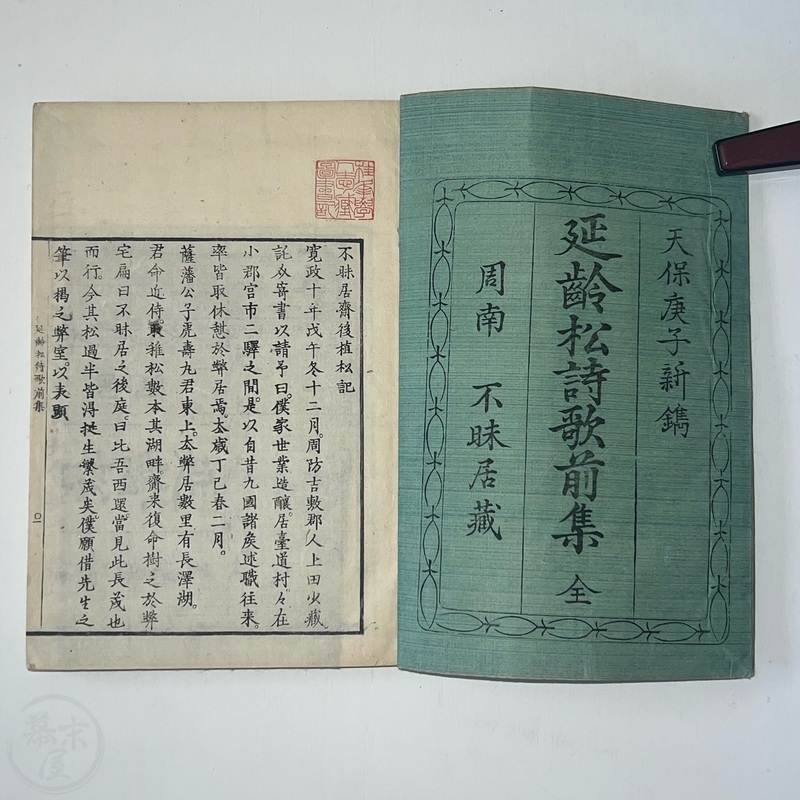 天保庚子新鐫
延齡松詩歌前集 全
周南 不昧居藏
不昧居齋後植松記
寛政十年戊午冬十二月。周防吉敷郡人上田少藏。
託友寄書以請予曰。僕家世業造釀。居臺道村。々在
小郡宮市二驛之間。是以自昔九國諸矦述職往来。
率皆取休憩於弊居焉。太歳丁巳春二月。
薩藩公子虎壽九君東上。去弊居數里有長澤湖。
君命近侍稚松數本其湖畔。齋来復命樹之於弊
宅扁曰不昧居之後庭。曰比吾西還。當見此長茂也
而行。今其松過半皆得挺生繁茂矣。僕願借先生之
筆以掲之弊室。以表顕
延齡松詩歌前集 ○一
幕末屋